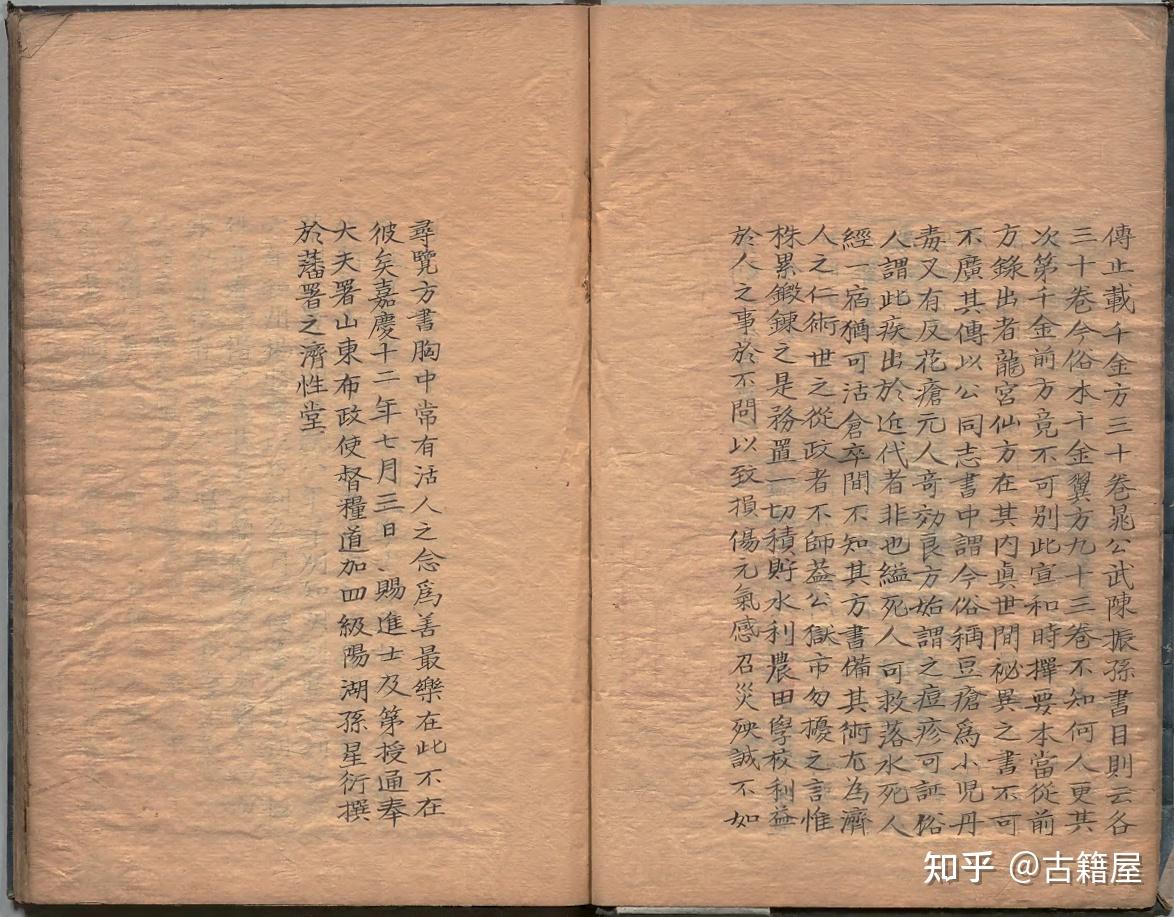 傳止載千金方三十卷晁公武陳振孫書目則云各
三十卷今俗本千金翼方九十三卷不知何人更其
次第千金前方竟不可別此宣和時擇要本當從前
方錄出者龍宮仙方在其內眞世間祕異之書不可
不廣其傳以公同志書中謂今俗稱豆瘡爲小児丹
毒又有反花瘡元人竒効良方始謂之痘疹可証俗
人謂此疾出於近代者非也縊死人可救落水死人
經一宿猶可活倉卒間不知其方書備其術尤為濟
人之仁術世之從政者不師葢公獄市勿擾之言惟
株累鍛鍊之是務置一切積貯水利農田學校利益
於人之事於不問以致損傷元氣感召災殃誠不如
尋覽方書胸中常有活人之念爲善最樂在此不在
彼矣嘉慶十二年七月三日賜進士及第授通奉
大夫署山東布政使督糧道加四級陽湖孫星衍撰
於藩署之濟性堂
知乎 @古籍屋